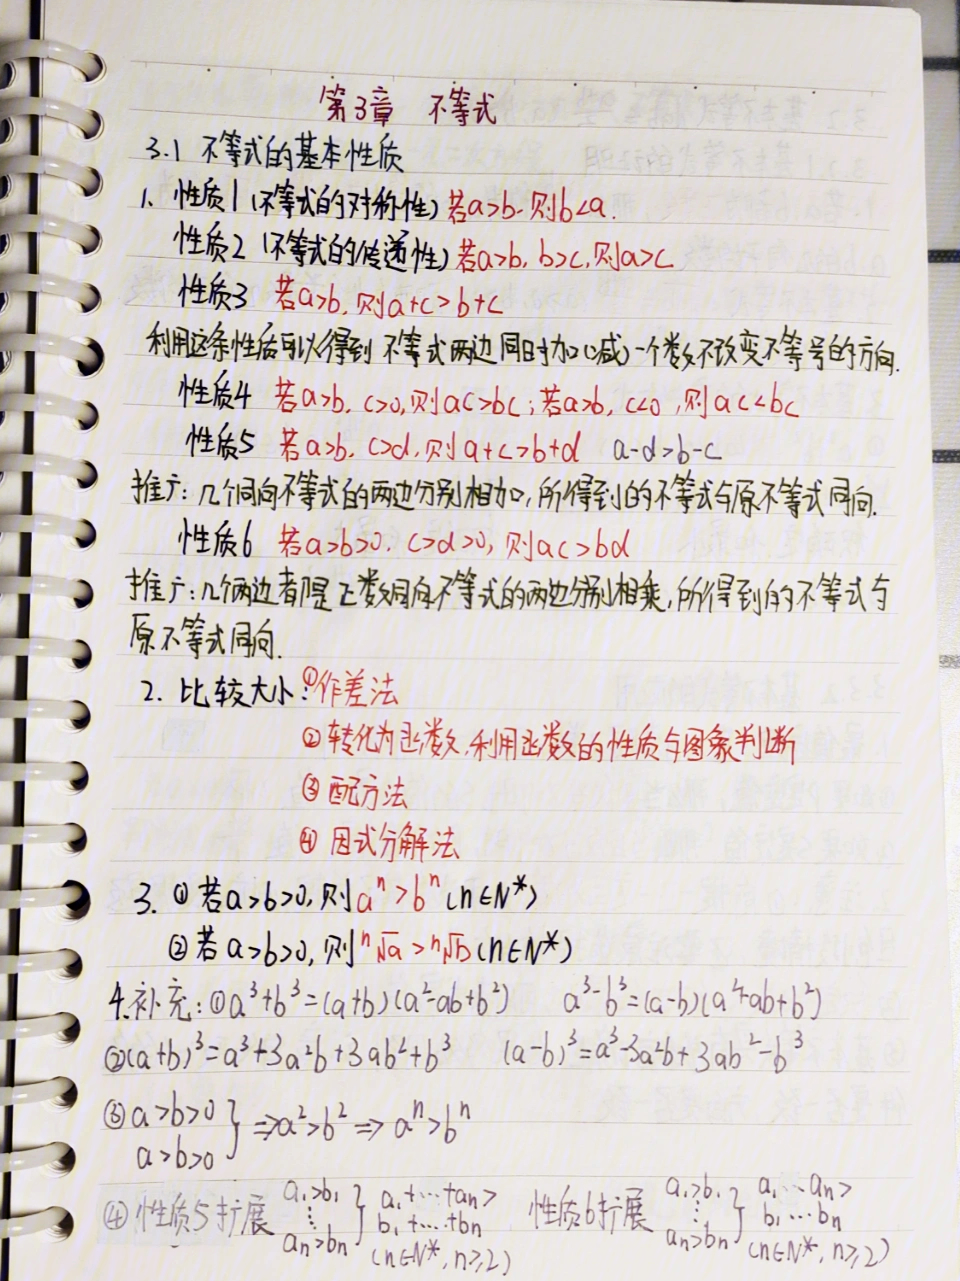 第3章 不等式
3.1 不等式的基本性质
1. 性质1(不等式的对称性)若a>b,则b<a.
性质2(不等式的传递性)若a>b,b>c,则a>c
性质3 若a>b,则a+c>b+c
利用这条性质可以得到 不等式两边同时加(减)一个数不改变不等号的方向.
性质4 若a>b,c>0,则ac>bc;若a>b,c<0,则ac<bc
性质5 若a>b,c>d,则a+c>b+d a-d>b-c
推广:几个同向不等式的两边分别相加,所得到的不等式与原不等式同向.
性质6 若a>b>0,c>d>0,则ac>bd
推广:几个两边都是正数同向不等式的两边分别相乘,所得到的不等式与
原不等式同向.
2. 比较大小:①作差法
②转化为函数,利用函数的性质与图象判断
③配方法
④因式分解法
3. ①若a>b>0,则aⁿ>bⁿ(n∈N*)
②若a>b>0,则ⁿ√a>ⁿ√b(n∈N*)
4.补充:①a³+b³=(a+b)(a²-ab+b²) a³-b³=(a-b)(a²+ab+b²)
②(a+b)³=a³+3a²b+3ab²+b³ (a-b)³=a³-3a²b+3ab²-b³
③a>b>0
a>b>0 } ⇒a²>b²⇒aⁿ>bⁿ
④性质5扩展 a₁>b₁ ⋮ aₙ>bₙ } a₁+…+aₙ> b₁+…+bₙ (n∈N*,n≥2) 性质6扩展 a₁>b₁ ⋮ aₙ>bₙ } a₁…aₙ> b₁…bₙ (n∈N*,n≥2)